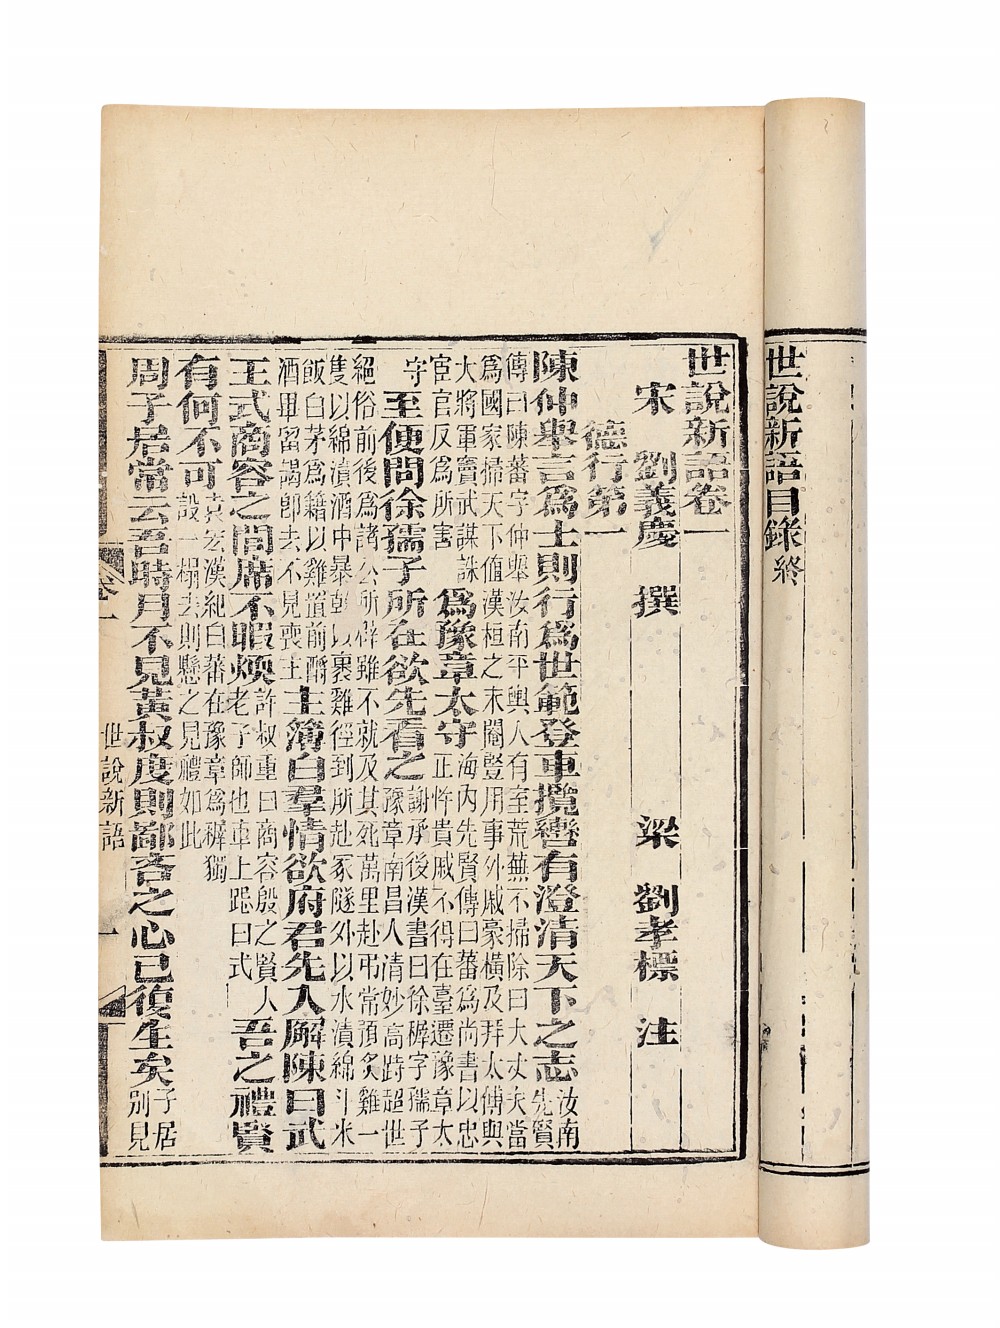 世說新語目錄終
世說新語卷一
宋 劉義慶 撰 梁 劉孝標 注
德行第一
陳仲舉言爲士則行爲世範登車攬轡有澄清天下之志汝南先賢
傳曰陳蕃字仲舉汝南平輿人有室荒蕪不掃除曰大丈夫當
爲國家掃天下值漢桓之末閹豎用事外戚豪橫及拜太傅與
大將軍竇武謀誅宦官反爲所害爲豫章太守海內先賢傳曰蕃爲尚書以忠正忤貴戚不得在臺遷豫章太
守至便問徐孺子所在欲先看之謝承後漢書曰徐穉字孺子豫章南昌人清妙高跱超世
絕俗前後爲諸公所辟雖不就及其死萬里赴弔常預炙雞一
隻以綿漬酒中暴乾以裹雞徑到所赴冢隧外以水漬綿斗米
飯白茅爲藉以雞置前酹酒畢留謁卽去不見喪主主簿白羣情欲府君先入廨陳曰武
王式商容之閭席不暇煖許叔重曰商容殷之賢人老子師也車上跽曰式吾之禮賢
有何不可袁宏漢紀曰蕃在豫章爲穉獨設一榻去則懸之見禮如此
周子居常云吾時月不見黃叔度則鄙吝之心已復生矣子居別見
卷一
世說新語
一